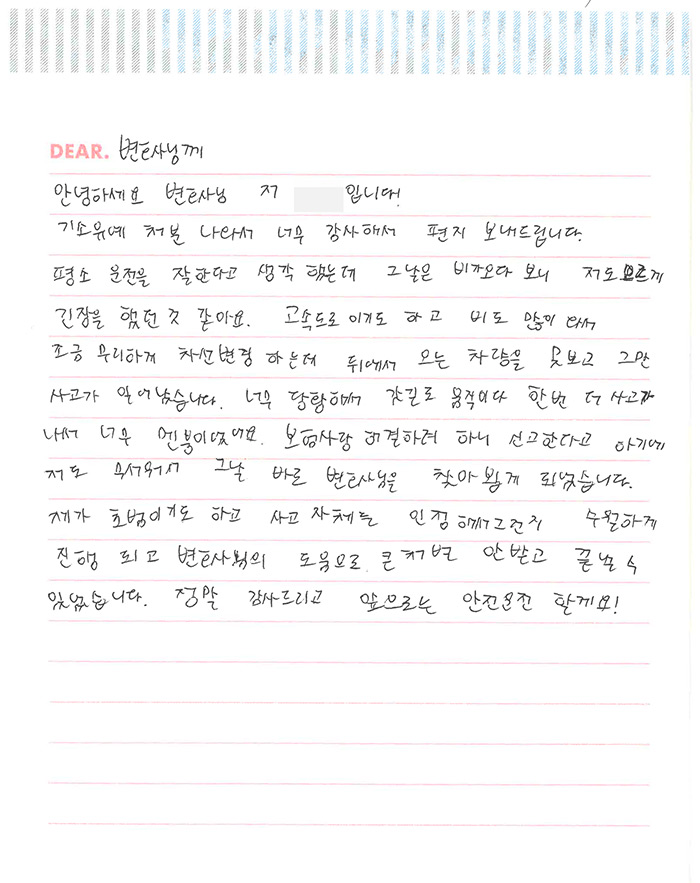 DEAR. 변호사님께
안녕하세요 변호사님 저 입니다!
기소유예 처분 나와서 너무 감사해서 편지 보내드립니다.
평소 운전을 잘한다고 생각 했는데 그날은 비가오다 보니 저도 모르게
긴장을 했던 것 같아요. 고속도로 이기도 하고 비도 많이 와서
조금 무리하게 차선변경 하는데 뒤에서 오는 차량을 못보고 그만
사고가 일어났습니다. 너무 당황해서 갓길로 움직이다 한번 더 사고가
나서 너무 멘붕이었어요. 보험사랑 해결하려 하니 신고한다고 하기에
저도 무서워서 그날 바로 변호사님을 찾아 뵙게 되었습니다.
제가 초범이기도 하고 사고 자체를 인정해서그런지 수월하게
진행 되고 변호사님의 도움으로 큰 처벌 안받고 끝날 수
있었습니다. 정말 감사드리고 앞으로는 안전운전 할게요!